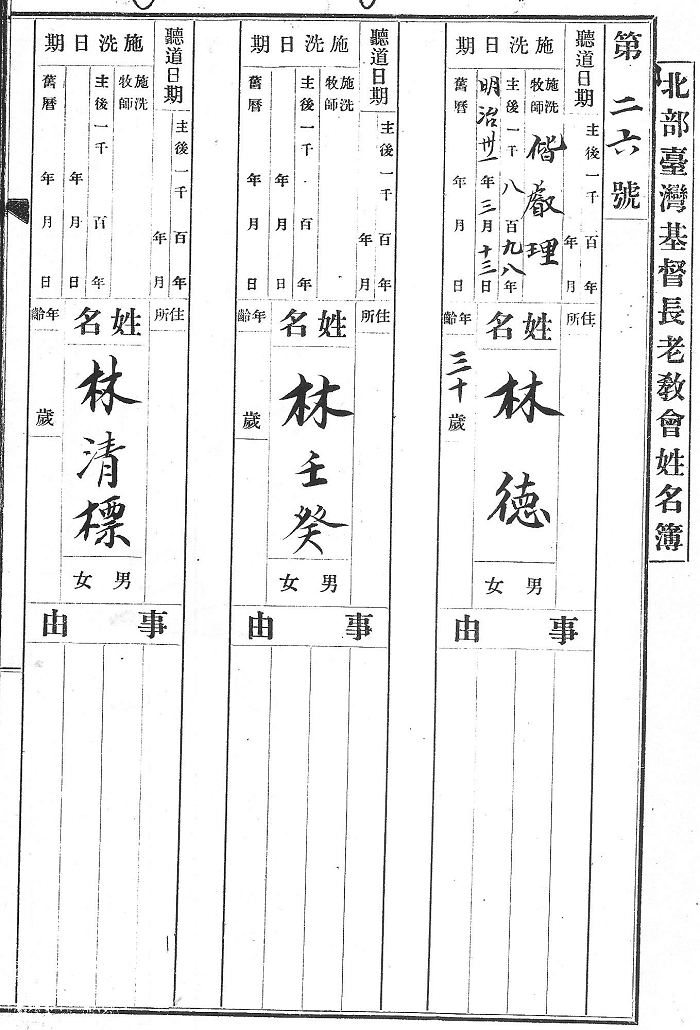 北部臺灣基督長老教會姓名簿
第二六號
聽道日期
主後一千 百 年
年 月
施洗日期
施洗牧師 偕叡理
主後一千八百九八年
明治卅一年三月十三日
舊曆 年 月 日
住所
姓名
林德
年齡
三十歲
男 女
事由
聽道日期
主後一千 百 年
年 月
施洗日期
施洗牧師
主後一千 百 年
年 月 日
舊曆 年 月 日
住所
姓名
林壬癸
年齡
歲
男 女
事由
聽道日期
主後一千 百 年
年 月
施洗日期
施洗牧師
主後一千 百 年
年 月 日
舊曆 年 月 日
住所
姓名
林清標
年齡
歲
男 女
事由